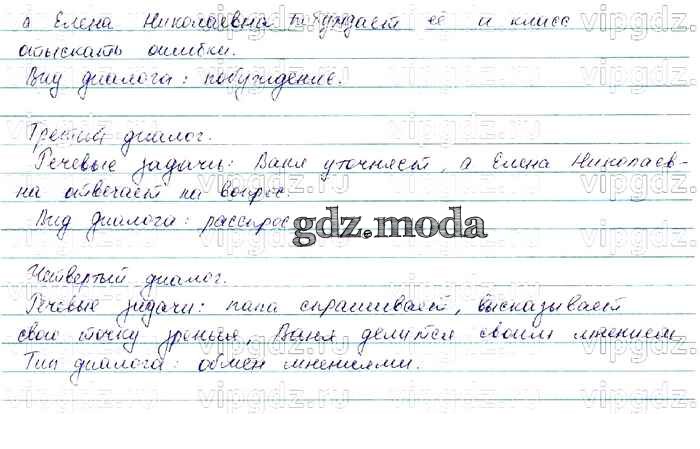 а Елена Николаевна побуждает её и класс
отыскать ошибки.
Вид диалога: побуждение.
Третий диалог.
Речевые задачи: Ваня уточняет, а Елена Николаев-
на отвечает на вопрос.
Вид диалога: расспрос
gdz.moda
Четвертый диалог.
Речевые задачи: папа спрашивает, высказывает
свою точку зрения, Ваня делится своим мнением
Тип диалога: обмен мнениями.